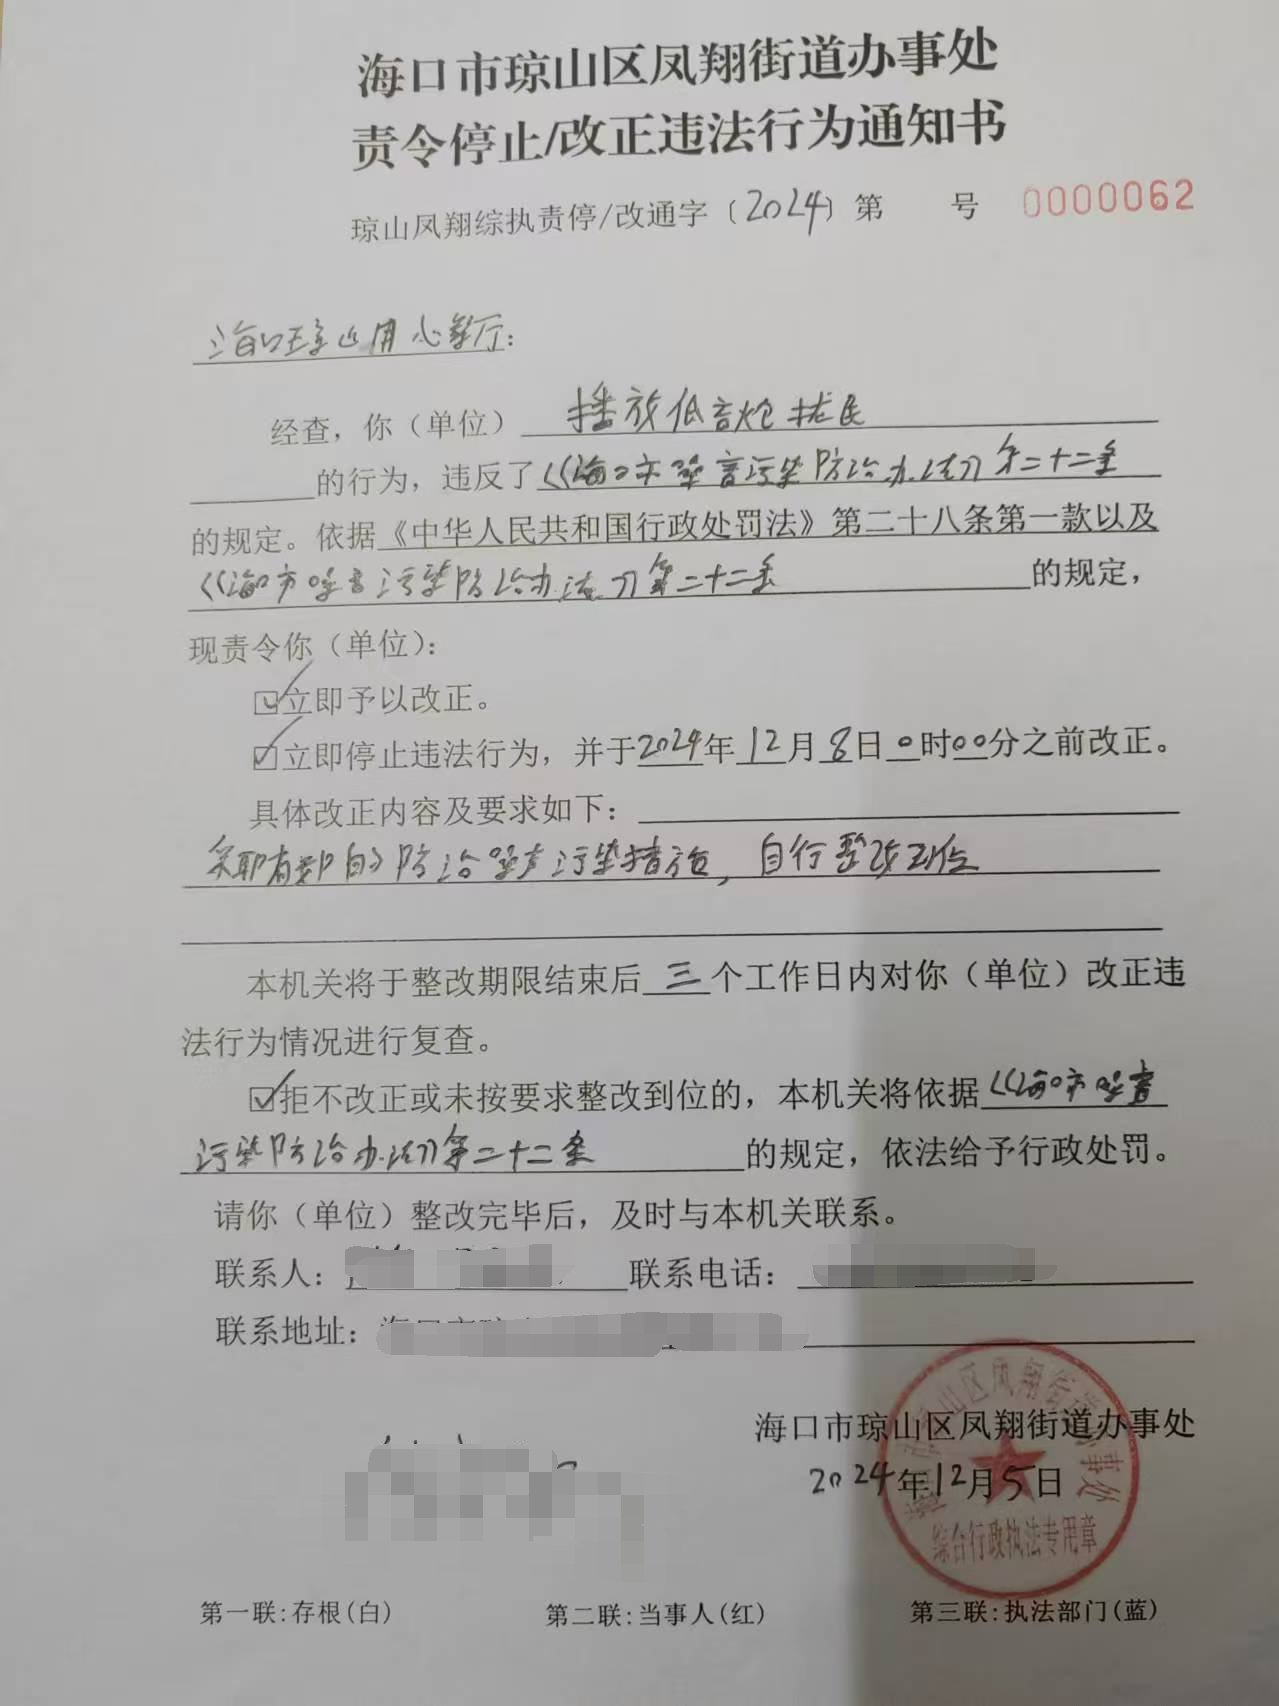 海口市琼山区凤翔街道办事处
责令停止/改正违法行为通知书
琼山凤翔综执责停/改通字〔2024〕第 号 0000062
海口琼山用心餐厅:
经查，你（单位） 播放低音炮扰民
的行为，违反了《海口市噪音污染防治办法》第二十二条
的规定。依据《中华人民共和国行政处罚法》第二十八条第一款以及
《海口市噪音污染防治办法》第二十二条 的规定，
现责令你（单位）：
☑立即予以改正。
☑立即停止违法行为，并于2024年12月8日0时00分之前改正。
具体改正内容及要求如下：
采取有效的防治噪声污染措施，自行整改到位
本机关将于整改期限结束后三个工作日内对你（单位）改正违
法行为情况进行复查。
☑拒不改正或未按要求整改到位的，本机关将依据《海口市噪音
污染防治办法》第二十二条 的规定，依法给予行政处罚。
请你（单位）整改完毕后，及时与本机关联系。
联系人： 联系电话：
联系地址：
海口市琼山区凤翔街道办事处
2024年12月5日
海口市琼山区凤翔街道办事处
综合行政执法专用章
第一联:存根(白) 第二联:当事人(红) 第三联:执法部门(蓝)